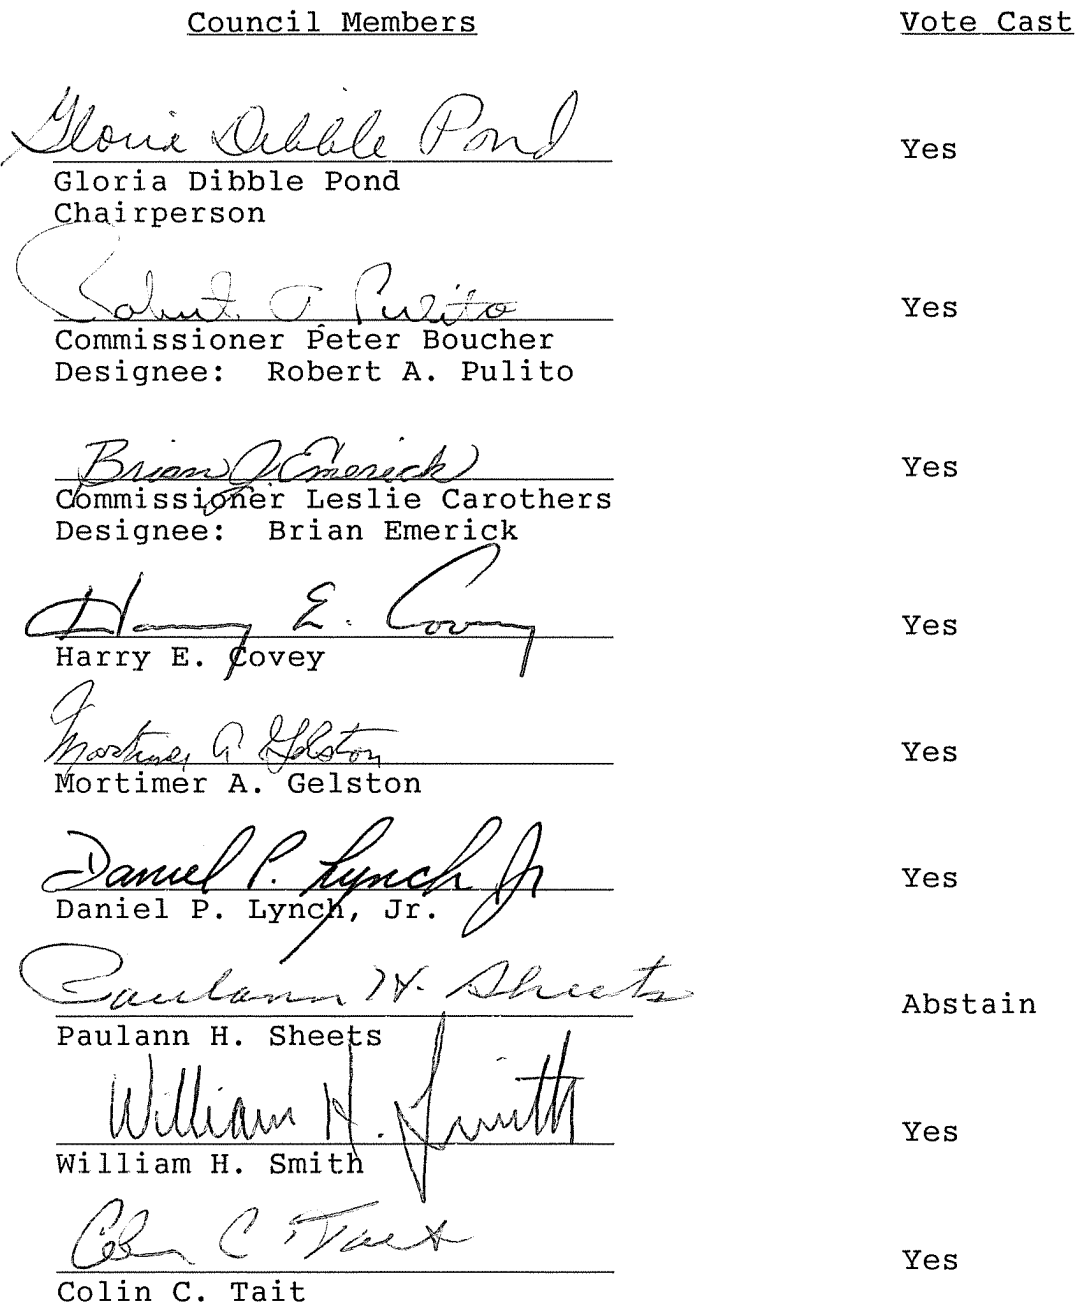 Council Members Vote Cast
Gloria Dibble Pond Yes
Gloria Dibble Pond
Chairperson
Robert Pulito Yes
Commissioner Peter Boucher
Designee: Robert A. Pulito
Brian J. Emerick Yes
Commissioner Leslie Carothers
Designee: Brian Emerick
Harry E. Covey Yes
Harry E. Covey
Mortimer A. Gelston Yes
Mortimer A. Gelston
Daniel P. Lynch Jr Yes
Daniel P. Lynch, Jr.
Paulann H. Sheets Abstain
Paulann H. Sheets
William H. Smith Yes
William H. Smith
Colin C. Tait Yes
Colin C. Tait